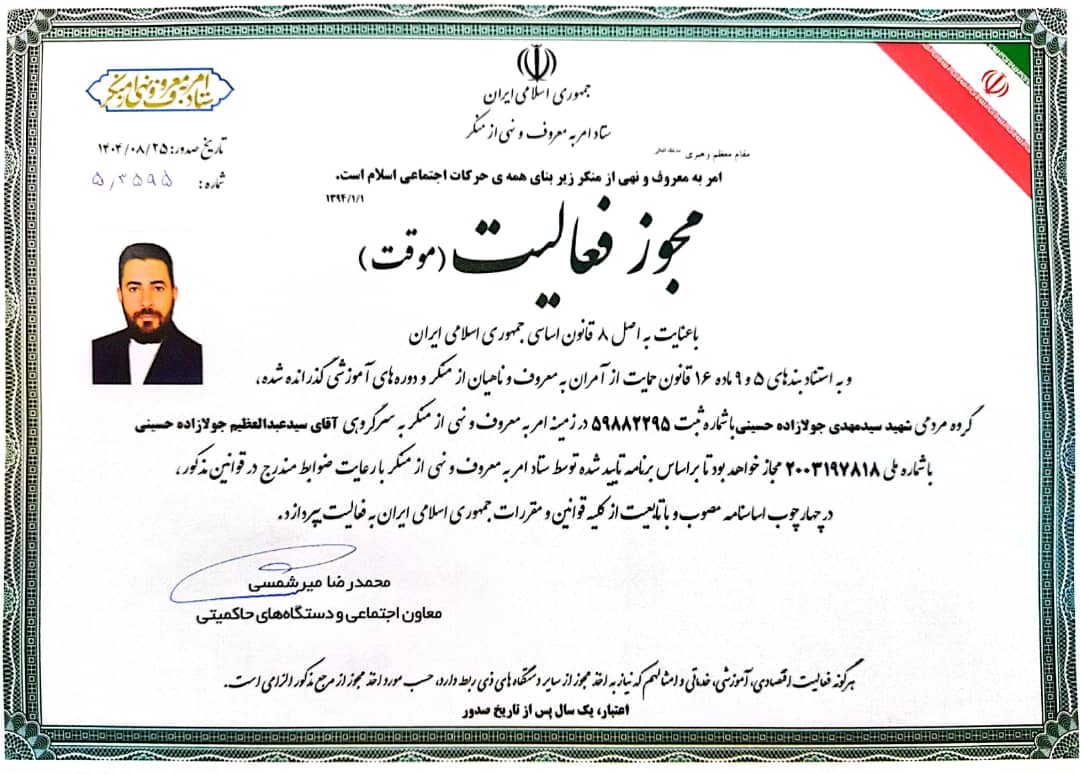 جمهوری اسلامی ایران
ستاد امر به معروف و نهی از منکر
ستاد امر به معروف و نهی از منکر
تاریخ صدور: ۱۴۰۴/۰۸/۲۵
شماره: ۵٫۳۵۹۵
مقام معظم رهبری مدظله العالی
امر به معروف و نهی از منکر زیر بنای همه ی حرکات اجتماعی اسلام است.
۱۳۹۴/۱/۱
مجوز فعالیت (موقت)
با عنایت به اصل ۸ قانون اساسی جمهوری اسلامی ایران
و به استناد بندهای ۵ و ۹ ماده ۱۶ قانون حمایت از آمران به معروف و ناهیان از منکر و دوره های آموزشی گذرانده شده،
گروه مردمی شهید سیدمهدی جولازاده حسینی با شماره ثبت ۵۹۸۸۲۲۹۵ در زمینه امر به معروف و نهی از منکر به سرگروهی آقای سیدعبدالعظیم جولازاده حسینی
با شماره ملی ۲۰۰۳۱۹۷۸۱۸ مجاز خواهد بود تا بر اساس برنامه تایید شده توسط ستاد امر به معروف و نهی از منکر با رعایت ضوابط مندرج در قوانین مذکور،
در چهارچوب اساسنامه مصوب و با تابعیت از کلیه قوانین و مقررات جمهوری اسلامی ایران به فعالیت بپردازد.
محمدرضا میرشمسی
معاون اجتماعی و دستگاه‌های حاکمیتی
هرگونه فعالیت اقتصادی، آموزشی، خدماتی و امثالهم که نیاز به اخذ مجوز از سایر دستگاه های ذی ربط دارد، حسب مورد اخذ مجوز از مرجع مذکور الزامی است.
اعتبار، یک سال پس از تاریخ صدور